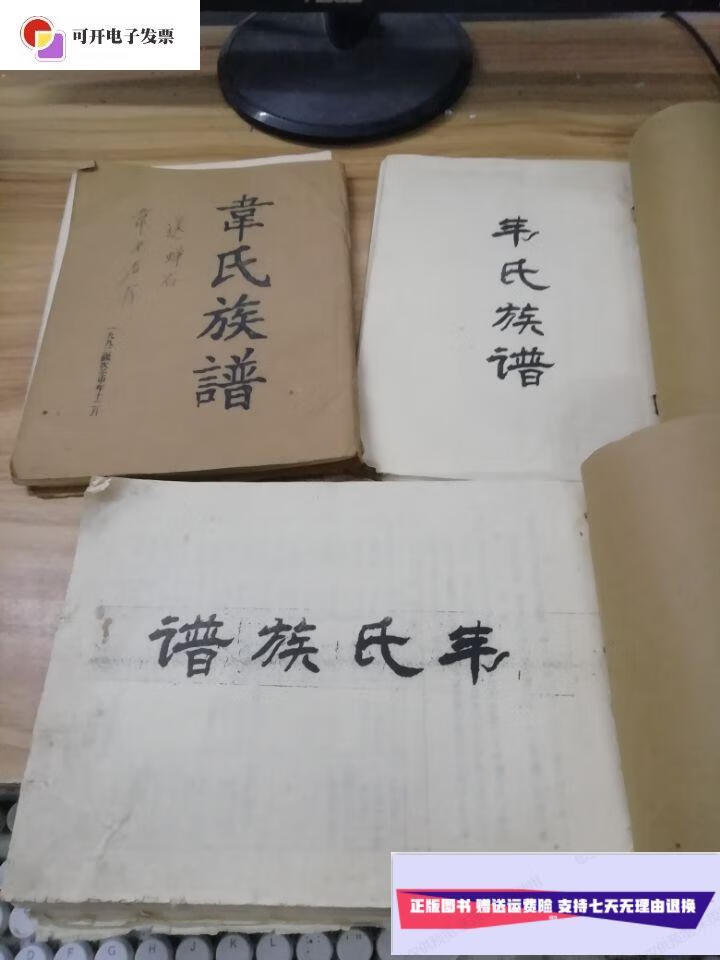 可开电子发票
韋氏族譜
韦氏族谱
谱族氏韦
正版图书 赠送运费险 支持七天无理由退换